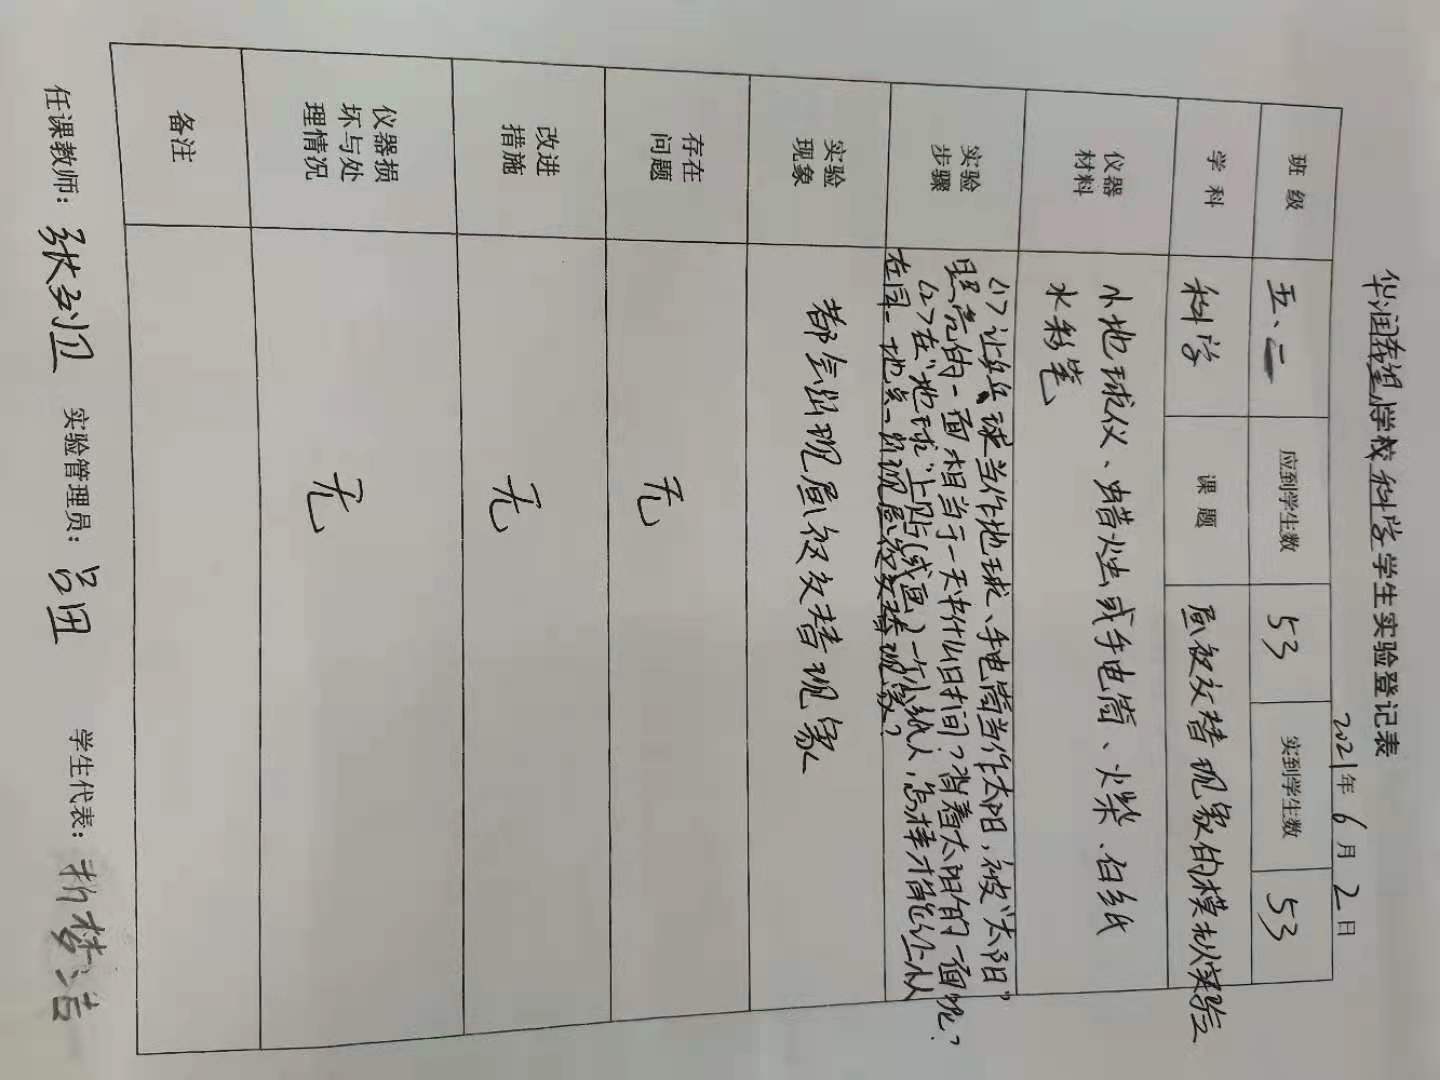 华润希望学校科学学生实验登记表
2021年6月2日
班级 五、二 应到学生数 53 实到学生数 53
学科 科学 课题 昼夜交替现象的模拟实验
仪器材料 小地球仪、蜡烛或手电筒、火柴、白纸
水彩笔
实验步骤 (1)让乒乓球当作地球、手电筒当作太阳,被"太阳"
照亮的一面相当于一天中什么时间?背着太阳的一面呢?
(2)在"地球"上贴(或画)一个小纸人,怎样才能让小人
在同一地点出现昼夜交替现象?
实验现象 都会出现昼夜交替现象
存在问题 无
改进措施 无
仪器损坏与处理情况 无
备注
任课教师: 张 实验管理员: 吕田 学生代表: 梦洁